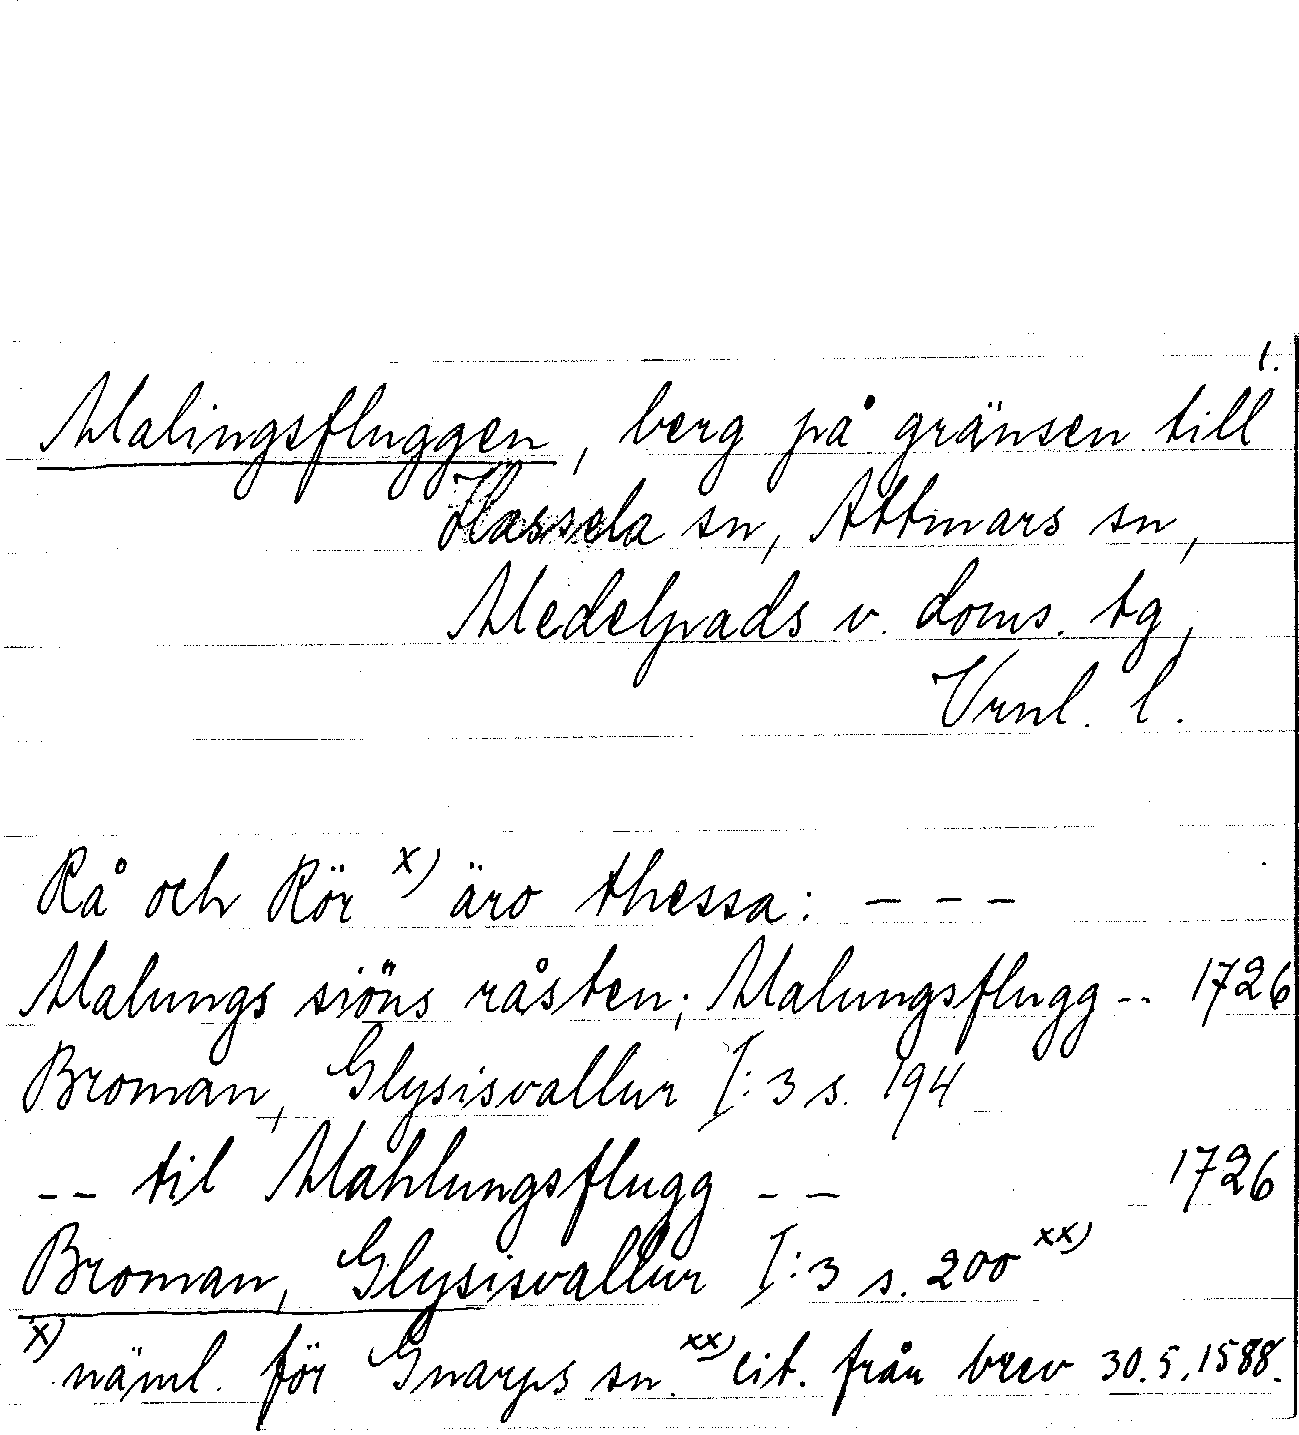 1.
Malingsfluggen, berg på gränsen till
Hassela sn, Attmars sn,
Medelpads v. doms. tg,
Vrnl. l.
Rå och Rör x) äro thessa: – – –
Malungs siöns råsten; Malungsflugg -- 1726
Broman, Glysisvallur I:3 s. 194
-- til Mahlungsflugg -- 1726
Broman, Glysisvallur I:3 s. 200 xx)
x) näml. för Gnarps sn. xx) cit. från brev 30.5.1588.